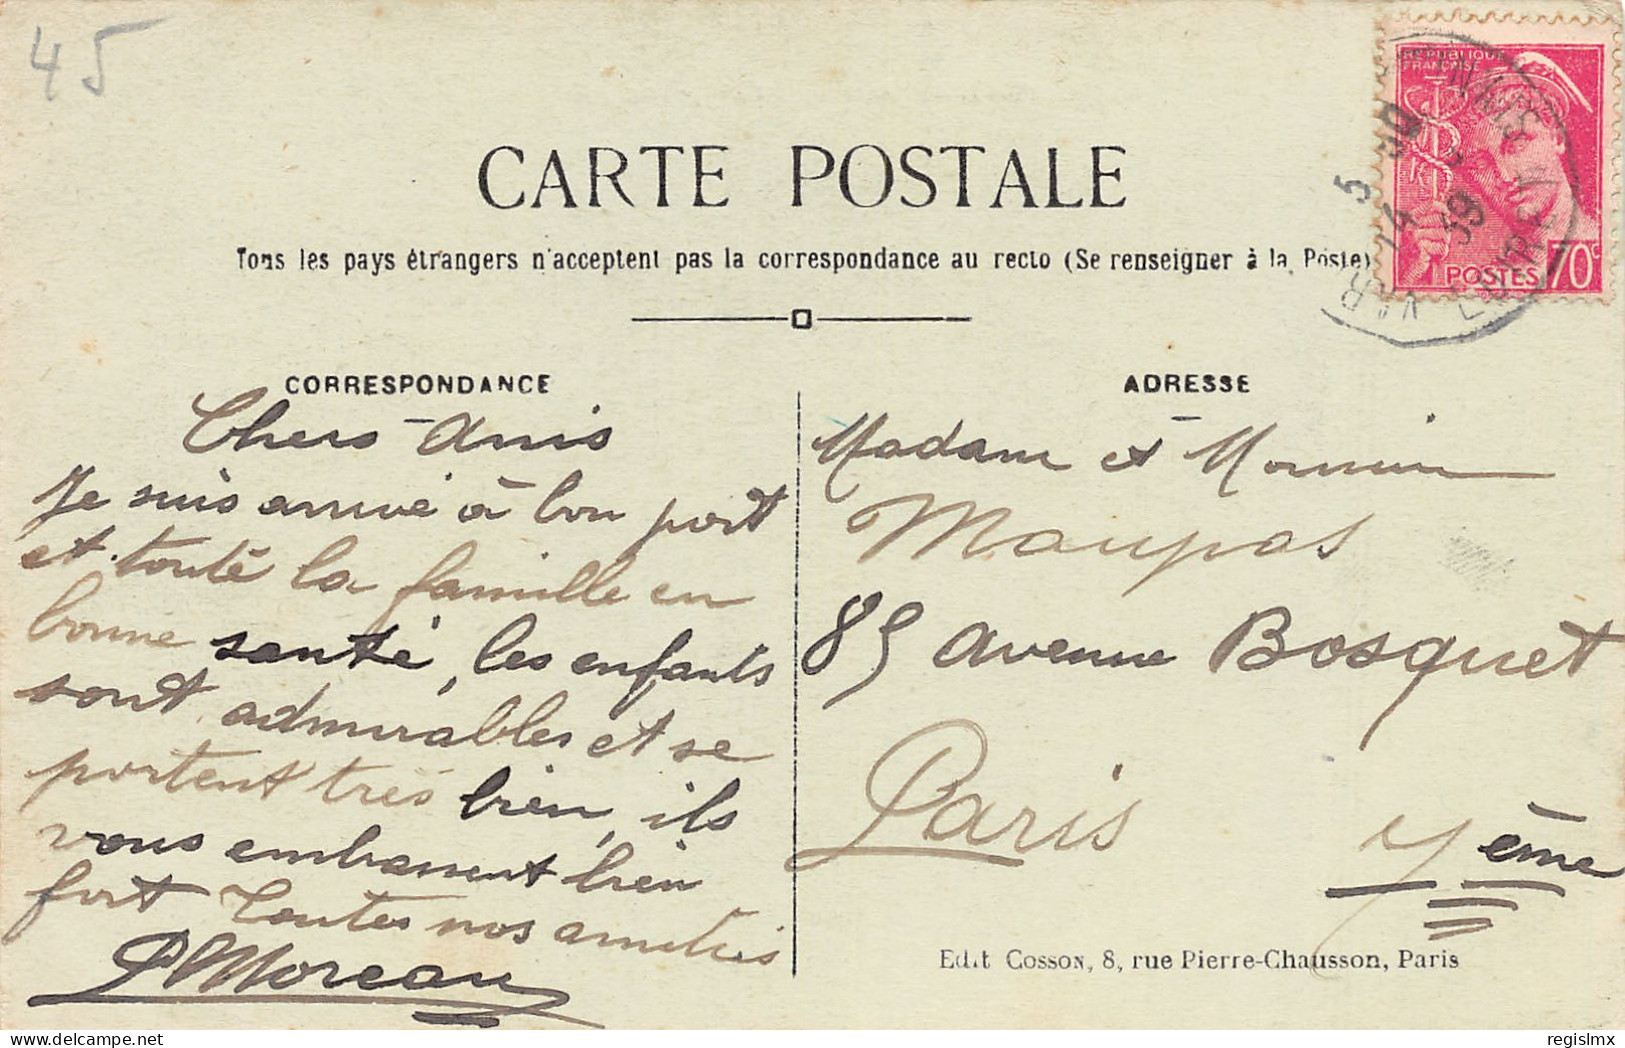 45
CARTE POSTALE
Tous les pays étrangers n'acceptent pas la correspondance au recto (Se renseigner à la Poste)
REPUBLIQUE
FRANÇAISE
POSTES 70c
14 30
5
39
VAR
CORRESPONDANCE
Chers Amis
Je suis arrivé à bon port
et toute la famille en
bonne santé, les enfants
sont admirables et se
portent très bien, ils
vous embrassent bien
fort Toutes nos amitiés
P Moreau
ADRESSE
Madame et Monsieur
Maupas
85 avenue Bosquet
Paris 7ème
Edit Cosson, 8, rue Pierre-Chausson, Paris
regislmx
delcampe.net